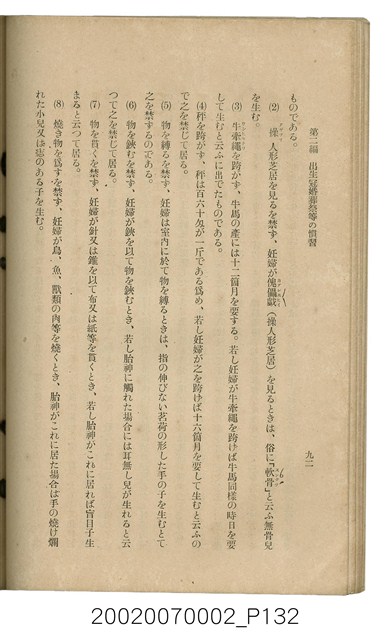 第二編　出生冠婚葬祭等の慣習　　九二
ものである。
(2) 操人形芝居を見るを禁ず、妊婦が傀儡戯（操人形芝居）を見るときは、俗に「軟骨」と云ふ無骨兒
を生む。
(3) 牛牽繩を跨がす、牛馬の產には十二箇月を要する。若し妊婦が牛牽繩を跨けば牛馬同樣の時日を要
して生むと云ふに出でたものである。
(4) 秤を跨がす、秤は百六十匁が一斤である爲め、若し妊婦が之を跨けば十六箇月を要して生むと云ふの
で之を禁じて居る。
(5) 物を縛るを禁ず、妊婦は室内に於て物を縛るときは、指の伸びない茗荷の形した手の子を生むとて
之を禁ずるのである。
(6) 物を鋏むを禁ず、妊婦が鋏を以て物を鋏むとき、若し胎神に觸れた場合には耳無し兒が生れると云
つて之を禁じて居る。
(7) 物を貫くを禁ず、妊婦が針又は鑽を以て布又は紙等を貫くとき、若し胎神がこれに居れば盲目子生
まると云つて居る。
(8) 燒き物を爲すを禁ず、妊婦が鳥、魚、獸類の肉等を燒くとき、胎神がこれに居た場合は手の燒け爛
れた小兒又は痣のある子を生む。
20020070002_P132